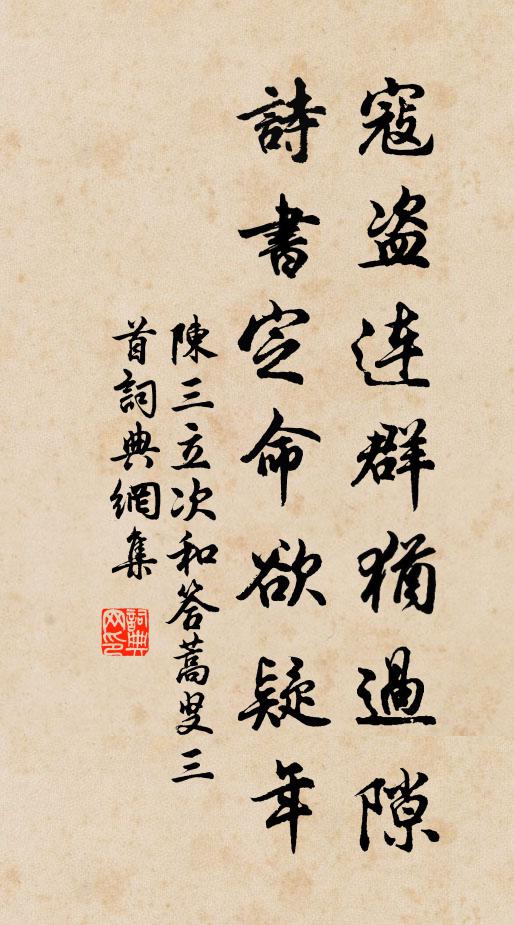 寇盗连群猶過隙
詩書定命欲疑年
陳三立次和答蒿叟三
首詞典網集
詞典
网印